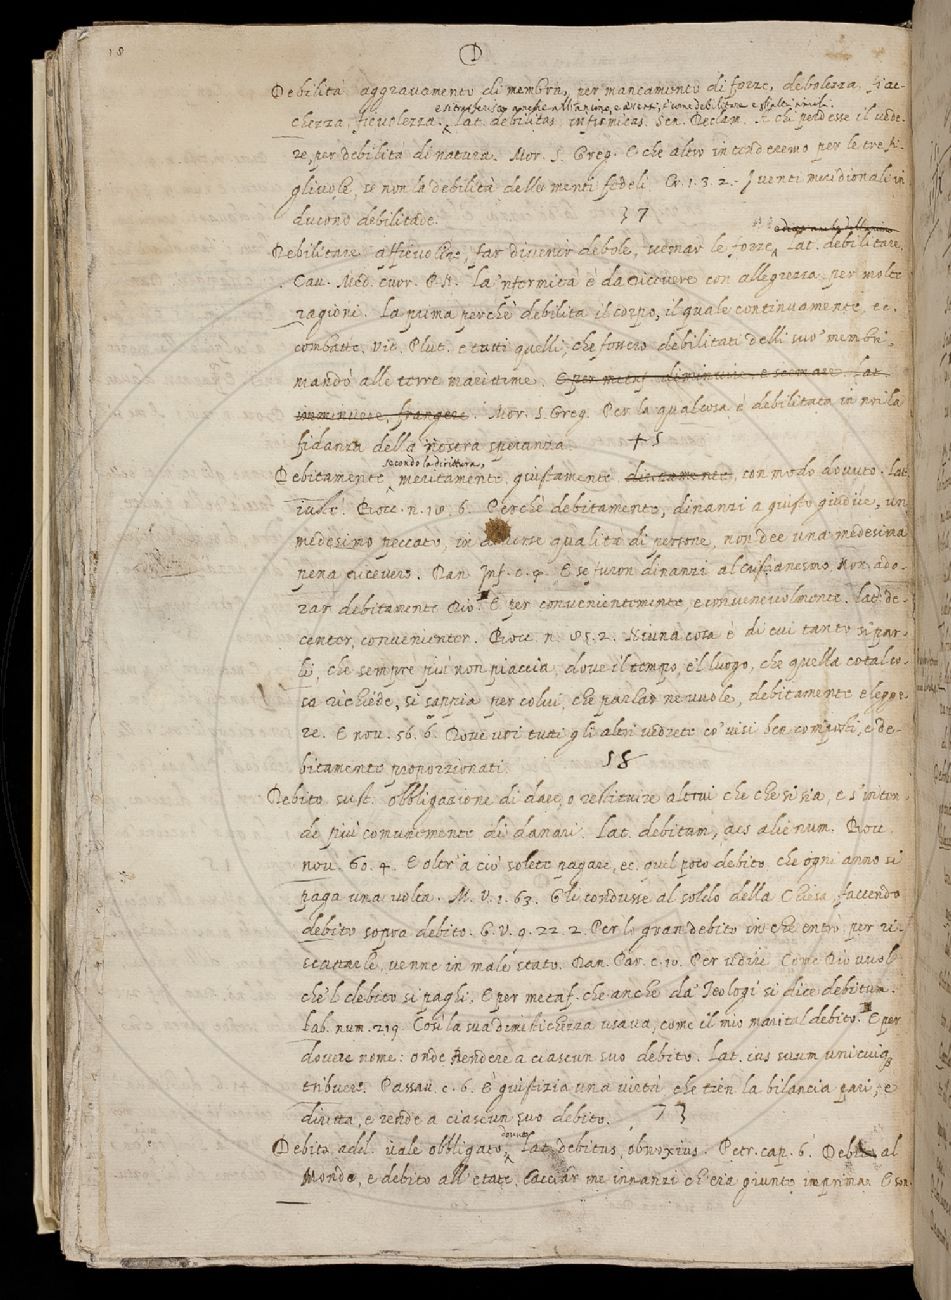 18
D
Debilità aggravamento di membra, per mancamento di forze, debolezza, fiac-
chezza, fievolezza. Lat. debilitas, infirmitas. Sen. Declam. A chi perdesse il vede-
re, per debilità di natura. Mor. S. Greg. E che altro intenderemo per le tre fi-
gliuole, se non la debilità delle menti fedeli. Cr. 1. 3. 2. I venti meridionali in
ducono debilitade. 37
Debilitare affievolire, far divenir debole, scemar le forze, Lat. debilitare.
Cav. Med. cuor. P.N. La 'nfermità è da ricevere con allegrezza per molte
ragioni. La prima perchè debilita il corpo, il quale continuamente, ec.
combatte. Vit. Plut. e tutti quelli, che fossero debilitati delli suo' membri,
mandò alle terre marittime. E per metaf. diminuire, e scemare. Lat.
imminuere, frangere. Mor. S. Greg. Per la qual cosa è debilitata in noi la
fidanza della nostra speranza. + 5
secondo la dirittura,
Debitamente meritamente, giustamente, con modo dovuto. Lat.
iuste. Bocc. n. 18. 6. Perchè debitamente, dinanzi a giusto giudice, un
medesimo peccato, in diverse qualità di persone, non dee una medesima
pena ricevere. Dan. Inf. c. 4. E se furon dinanzi al Cristianesmo Non ado-
rar debitamente Dio. E per convenientemente, e convenevolmente. Lat. de-
center, convenienter. Bocc. n. 85. 2. Niuna cosa è di cui tanto si par-
li, che sempre più non piaccia, dove il tempo, e 'l luogo, che quella cotal co-
sa richiede, si sappia per colui, che parlar ne vuole, debitamente elegge-
re. E nov. 56. 6. Dove voi tutti gli altri vedrete co' visi ben composti, e de-
bitamente proporzionati. 58
Debito sust. obbligazione di dare, o restituire altrui che che si sia, e s' inten-
de più comunemente di danari. Lat. debitum, aes alienum. Bocc.
nov. 60. 4. E oltr' a ciò solete pagare, ec. quel poco debito, che ogni anno si
paga una volta. M. V. 1. 63. Gli condusse al soldo della Chiesa, faccendo
debito sopra debito. G. V. 9. 22. 2. Per lo gran debito in che entrò per ri-
scuoterle, venne in male stato. Dan. Par. c. 10. Per udire Come Dio vuol
che 'l debito si paghi. E per metaf. che anche da' Teologi si dice debitum.
Lab. num. 219. Così la sua dimestichezza usava, come il mio marital debito. E per
dovere nome: onde Rendere a ciascun suo debito. Lat. ius suum unicuiq
tribuere. Passav. c. 6. È giustizia una virtù che tien la bilancia pari, e
diritta, e rende a ciascun suo debito. 73
dovuto
Debito add. vale obbligato. Lat. debitus, obnoxius. Petr. cap. 6. Debito al
Mondo, e debito all' etate, Cacciar me innanzi ch' era giunto imprima. E son.